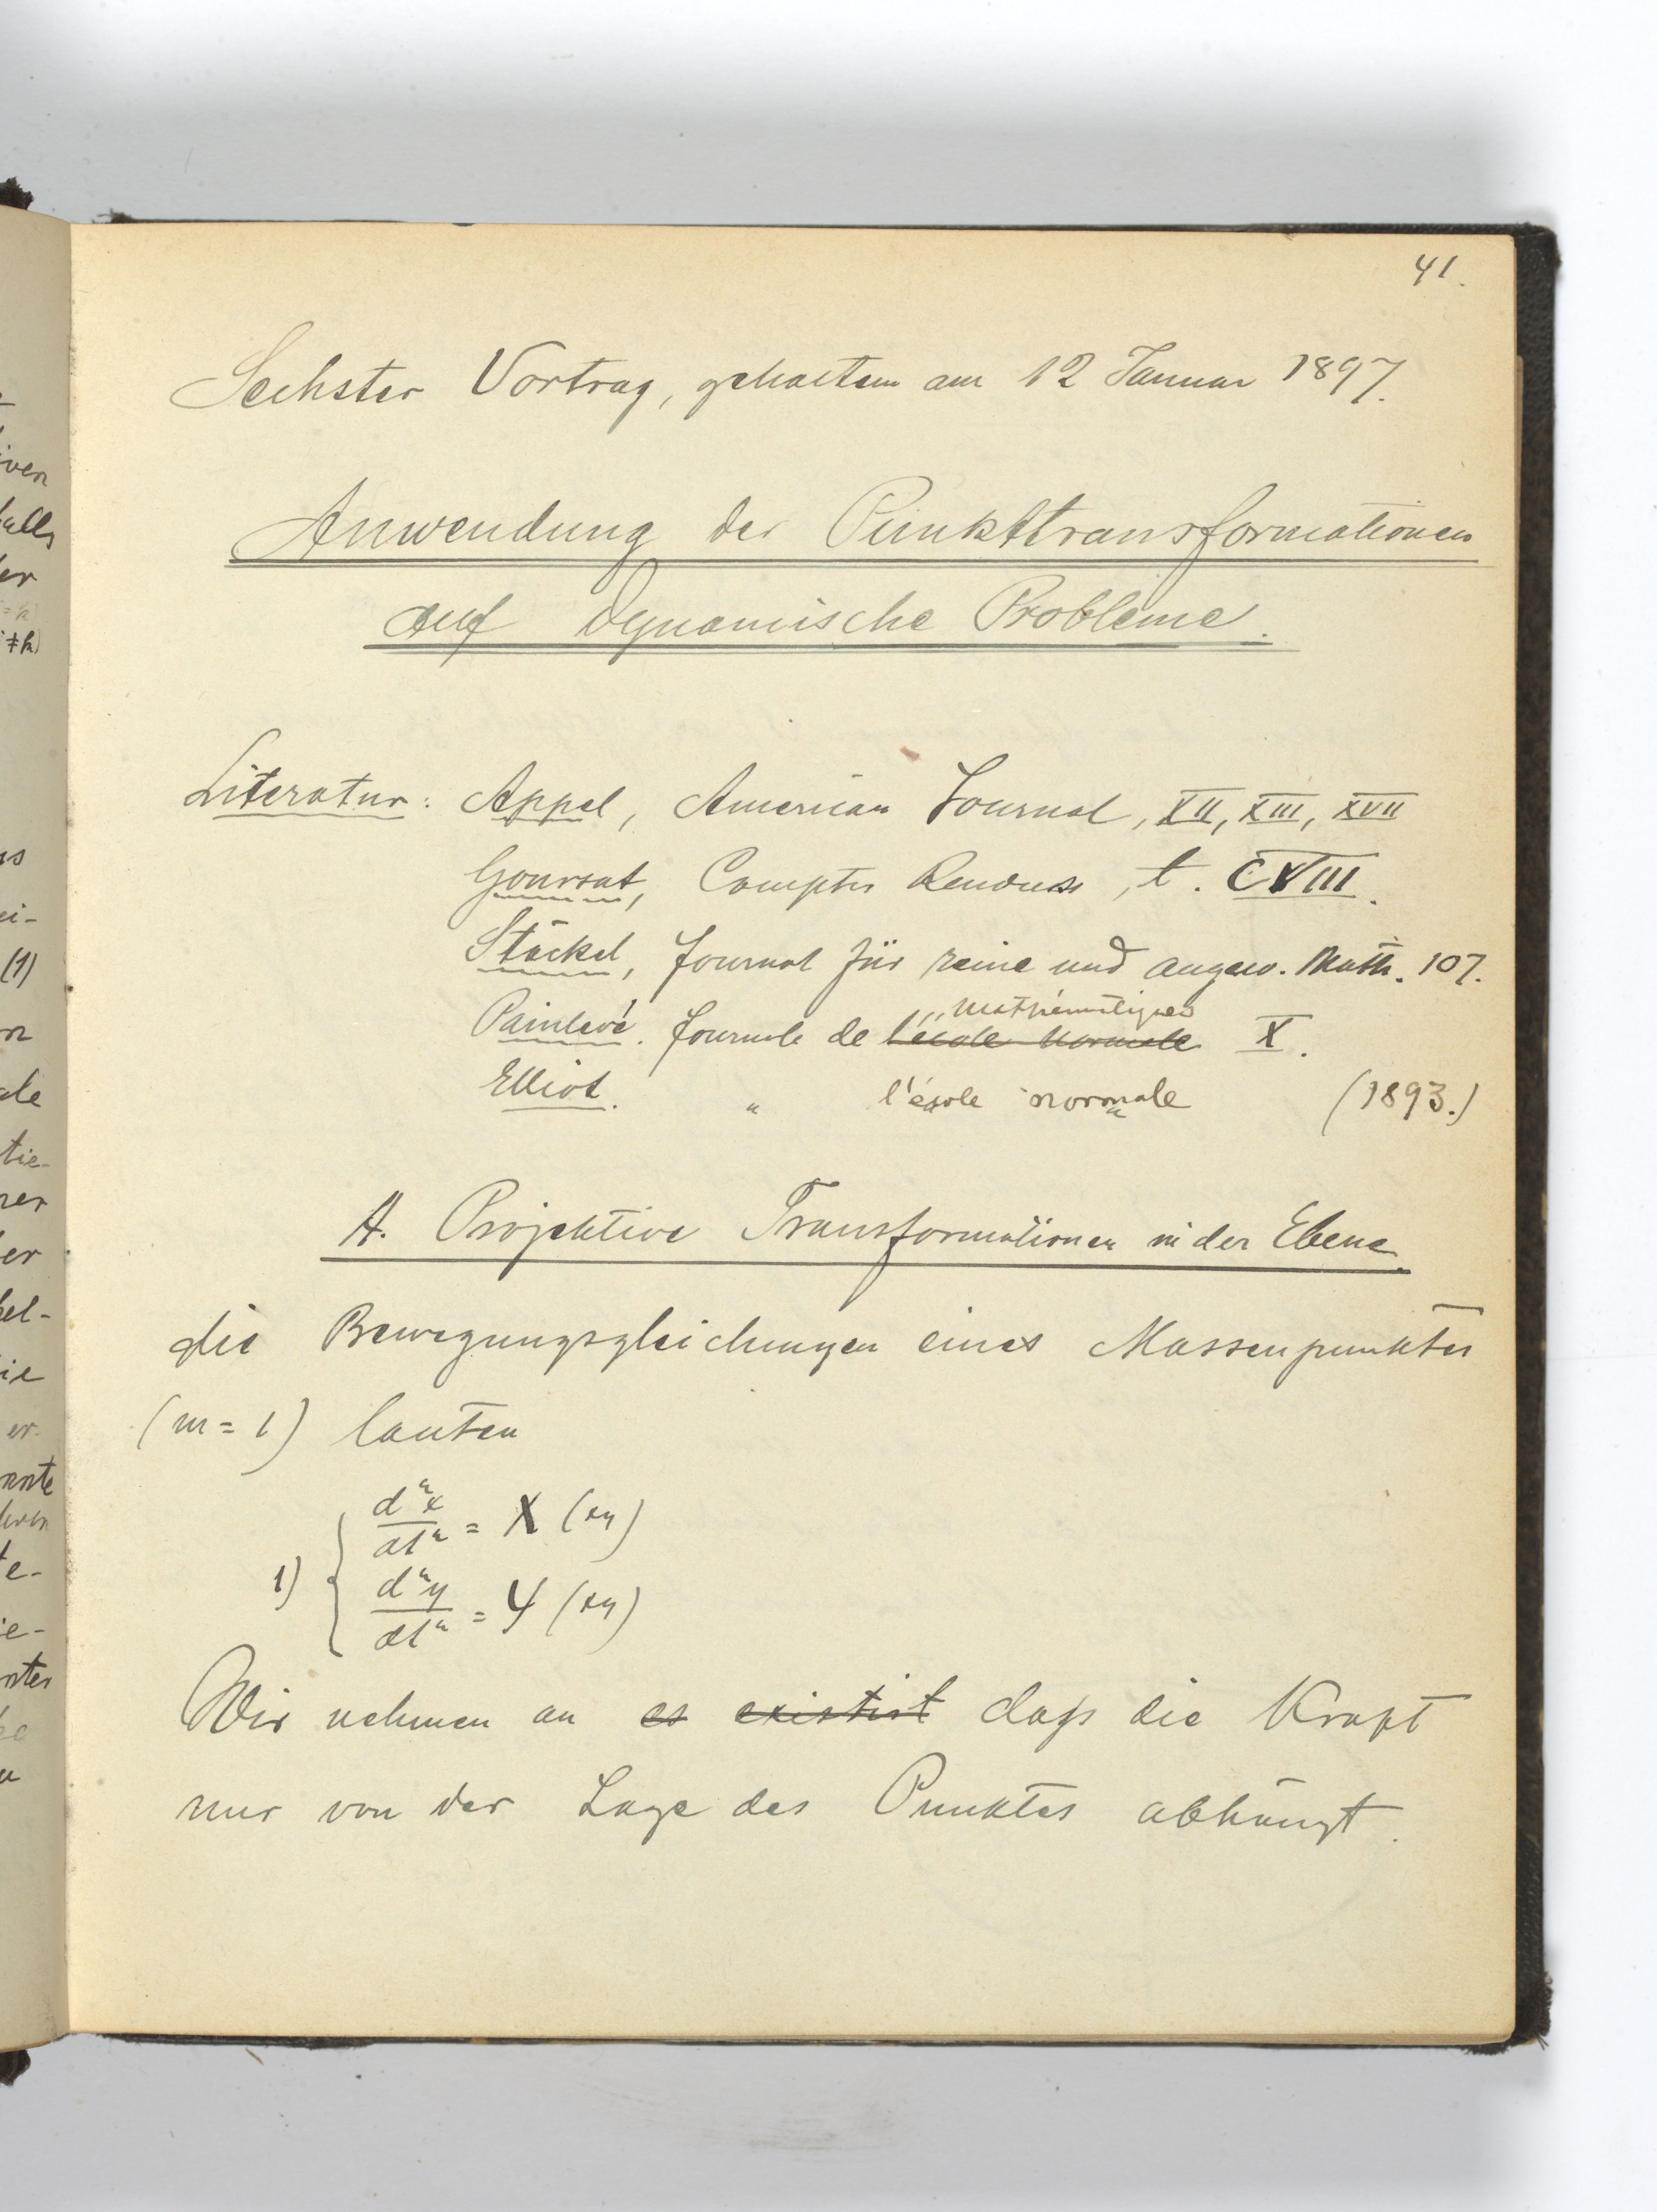 41.
Sechster Vortrag, gehalten am 12 Januar 1897.
Anwendung der Punkttransformationen
auf dynamische Probleme.
Literatur: Appel, American Journal, XII, XIII, XVII
Goursat, Comptes Renduse, t. CVIII.
Stäckel, Journal für reine und angew. Math. 107.
mathématiques
Painlevé. Journale de l'école normale X.
Elliot. " l'école normale (1893.)
A. Projektive Transformationen in der Ebene.
die Bewegungsgleichungen eines Massenpunktes
(m = 1) lauten
d²x/dt² = X (xy)
1)
d²y/dt² = Y (xy)
Wir nehmen an es existirt daß die Kraft
nur von der Lage des Punktes abhängt.
iven
falls
er
(i≠k)
(1)
ei-
tie-
rer
er
kel-
ie
er-
nnte
e-
ie-